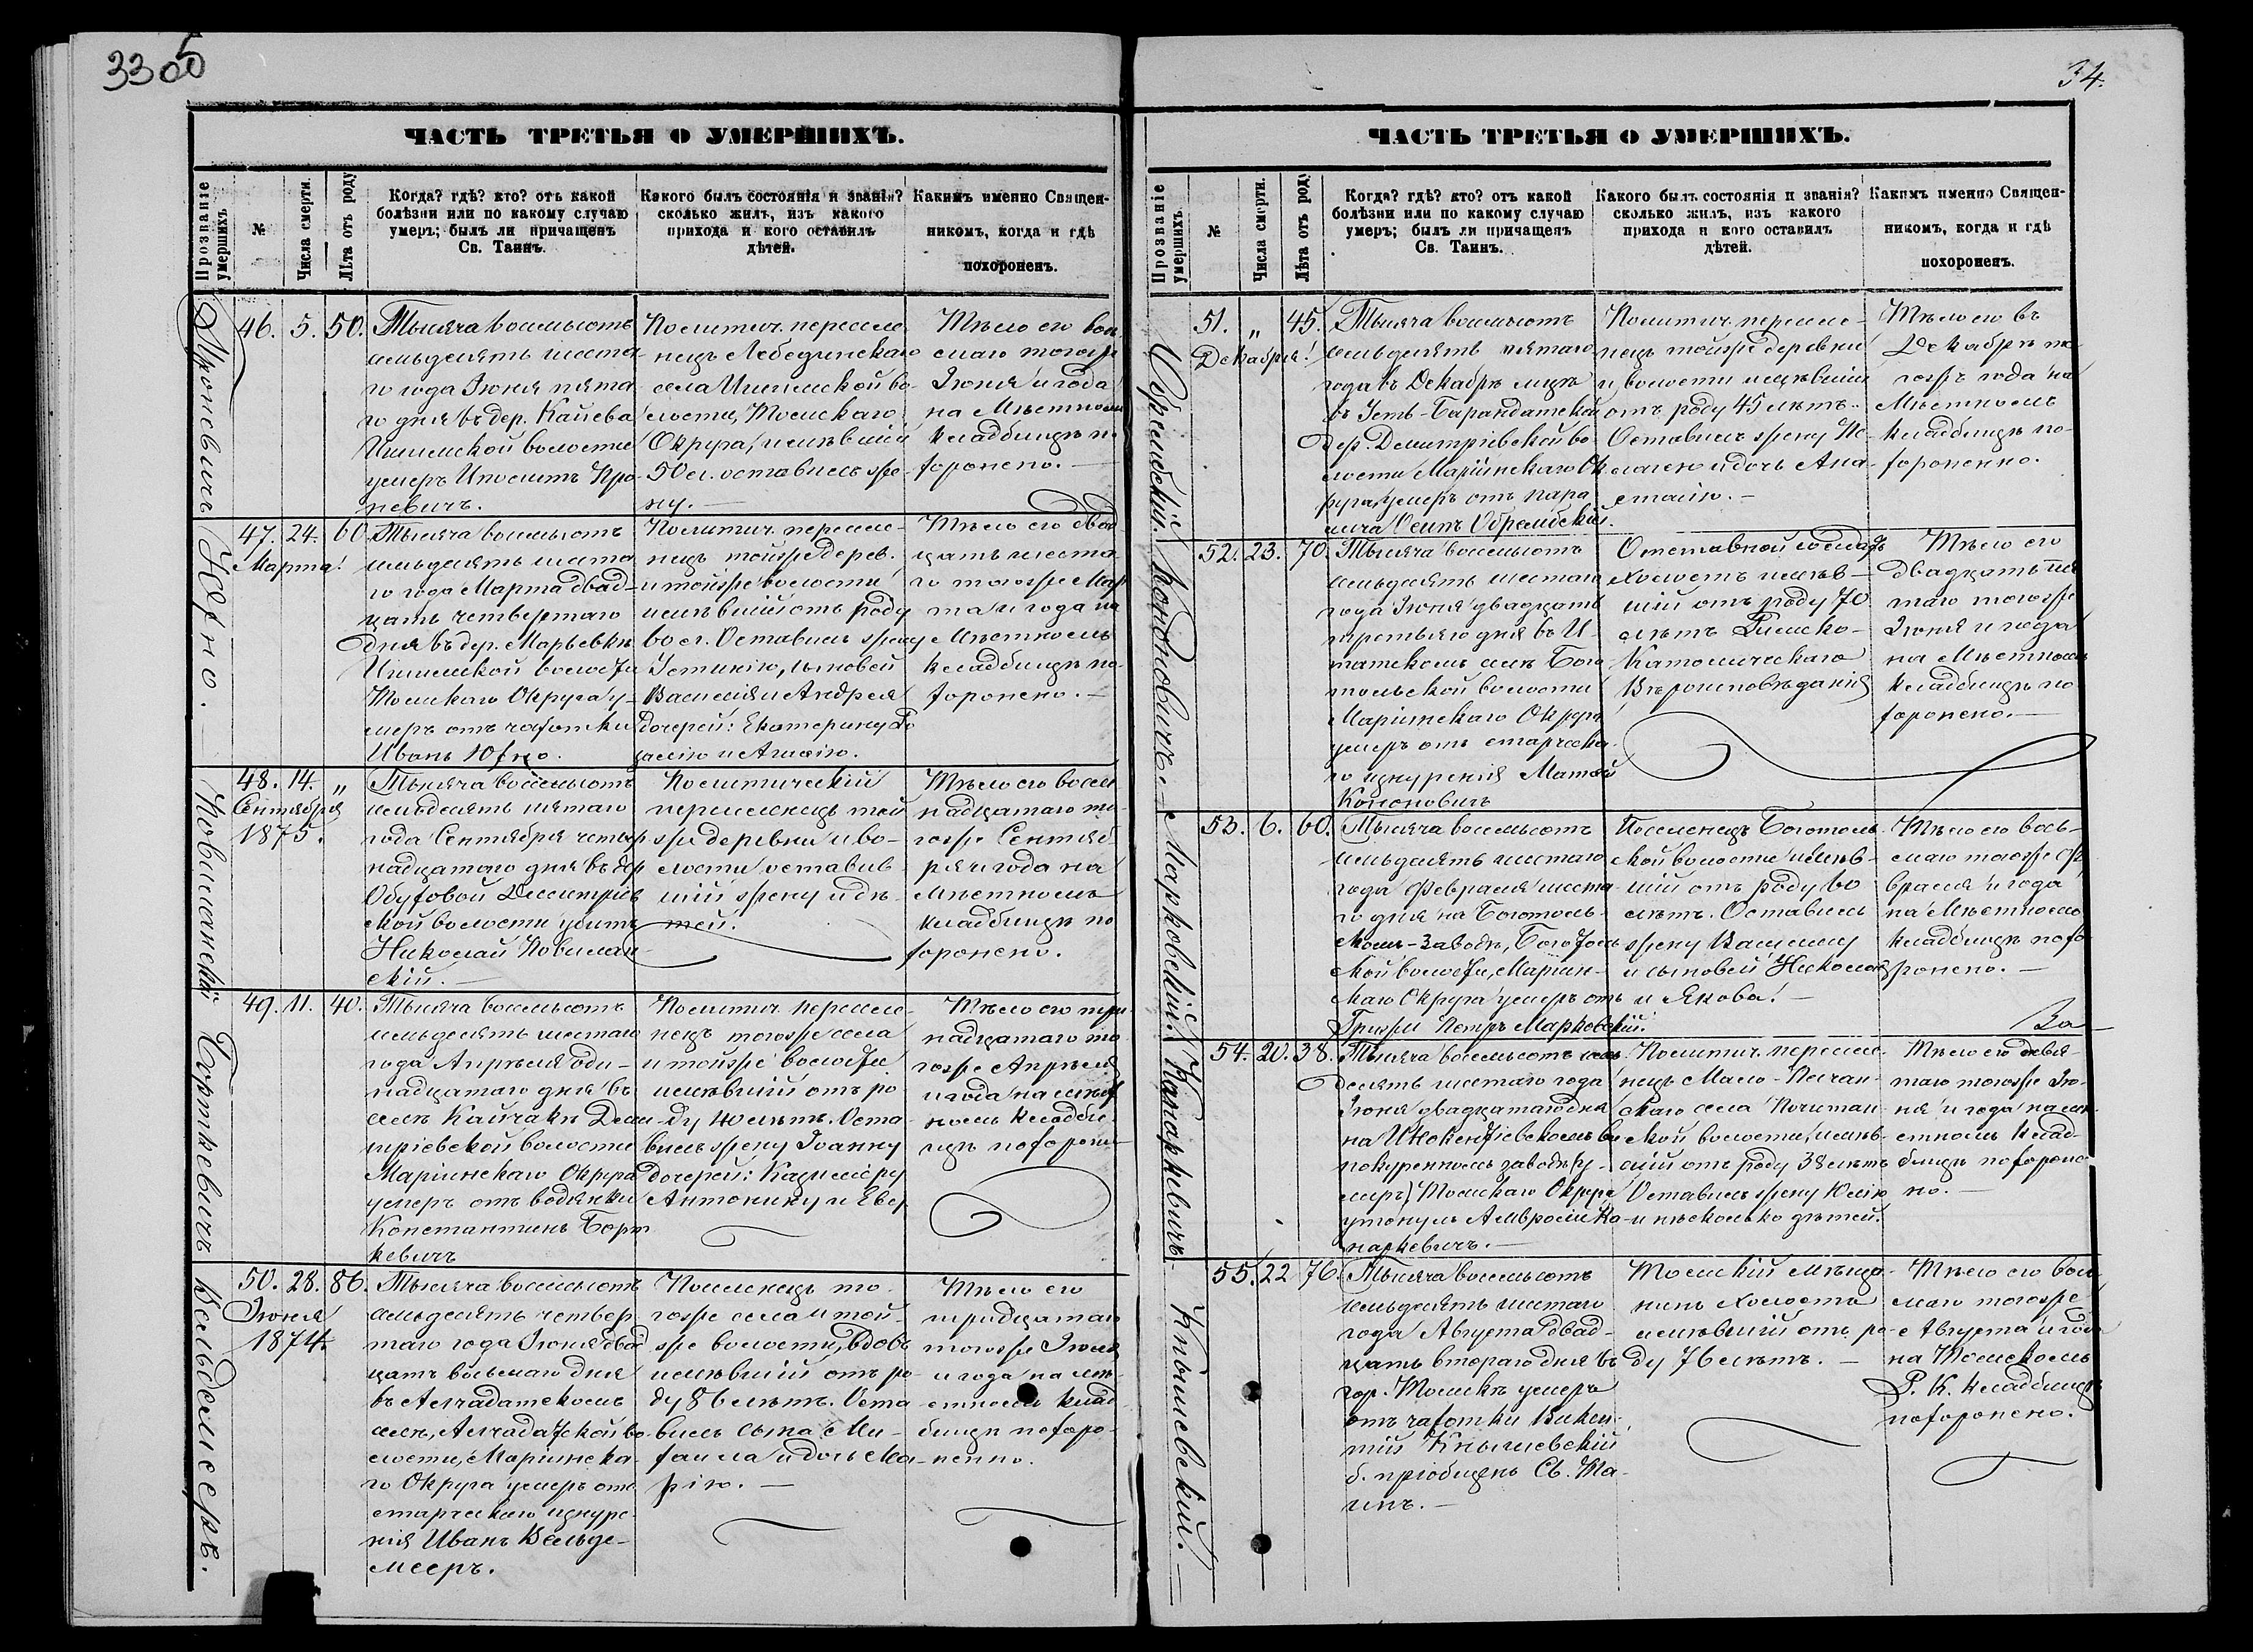 33об
5
ЧАСТЬ ТРЕТЬЯ О УМЕРШИХЪ.
Прозваніе умершихъ
№
Числа смерти.
Лѣта отъ роду
Когда? гдѣ? кто? отъ какой
болѣзни или по какому случаю
умеръ; былъ ли причащенъ
Св. Таинъ.
Какого былъ состоянія и званія?
сколько жилъ, изъ какого
прихода и кого оставилъ
дѣтей.
Какимъ именно Священ-
никомъ, когда и гдѣ
похороненъ.
46. 5. 50.
Тысяча восемьсотъ
семьдесятъ шеста
го года Іюня пята
го дня въ дер.
Ишимской волости
умеръ Иполитъ Про
невичъ.
Политич. переселе
нецъ Лебединскаго
села Ишимской во
лости, Томскаго
Округа, имѣвшій
50 л. оставилъ же
ну. —
Тѣло его вос
маго тогоже
Іюня и года
на Мѣстномъ
кладбищѣ по
хоронено. —
Юхно.
47. 24. 60.
Марта
Тысяча восемьсотъ
семьдесятъ шеста
го года Марта двад-
цать четвертаго
дня въ дер. Марьевкѣ
Ишимской волости
Томскаго Округа у-
меръ отъ чахотки
Иванъ Юхно.
Политич. переселе-
нецъ тойже дерев.
и тойже волости
имѣвшій отъ роду
60 л. Оставилъ жену
Устинію, сыновей
Василія и Андрея
дочерей: Екатерину
Тѣло его двад
цать шеста
го тогоже Мар
та и года на
Мѣстномъ
кладбищѣ по
хоронено. —
48. 14. „
Сентября
1875.
Тысяча восемьсотъ
семьдесятъ пятаго
года Сентября четыр
надцатаго дня въ дер
Обуховой Димитріев
ской волости убитъ
Николай Повилан
скій. —
Политическій
переселенецъ той
же деревни и во-
лости оставив
шій жену и дѣ-
тей.
Тѣло его восем
надцатаго то
гоже Сентяб
ря и года на
Мѣстномъ
кладбищѣ по
хоронено.
Борткевичъ
49. 11. 40.
Тысяча восемьсотъ
семьдесятъ шестаго
года Апрѣля оди-
надцатаго дня въ
селѣ Кайчакъ Дим
тріевской волости
Маріинскаго Округа
умеръ отъ водянки
Константинъ Борт
кевичъ
Политич. переселе-
нецъ тогоже села
и тойже волости
имѣвшій отъ ро
ду 40 лѣтъ. Оста
вилъ жену Іоанну
дочерей: Казиміру
Антонину и Евву
Тѣло его три
надцатаго то
гоже Апрѣля
и года на мѣст
номъ кладби
щѣ похорон
Вельдемееръ.
50. 28. 86.
Іюня
1874.
Тысяча восемьсотъ
семьдесятъ четвер
таго года Іюня двад
цать восьмаго дня
въ Алчадатскомъ
селѣ, Алчадатской во
лости, Маріинска-
го Округа умеръ отъ
старческаго изнуре-
нія Иванъ Вельде-
мееръ.
Поселенецъ то
гоже села и той-
же волости, вдовъ
имѣвшій отъ ро
ду 86 лѣтъ. Оста
вилъ сына Ми-
хаила и дочь Ма-
рію. —
Тѣло его
тридцатаго
тогоже Іюня
и года на мѣ-
стномъ клад
бищѣ похоро-
нено.
34.
ЧАСТЬ ТРЕТЬЯ О УМЕРШИХЪ.
Прозваніе умершихъ
№
Числа смерти.
Лѣта отъ роду
Когда? гдѣ? кто? отъ какой
болѣзни или по какому случаю
умеръ; былъ ли причащенъ
Св. Таинъ.
Какого былъ состоянія и званія?
сколько жилъ, изъ какого
прихода и кого оставилъ
дѣтей.
Какимъ именно Священ-
никомъ, когда и гдѣ
похороненъ.
Обрембскій.
51. „ 45.
Декабря
Тысяча восемьсотъ
семьдесятъ пятаго
года въ Декабрѣ мцѣ
въ Усть-Барандатской
дер. Димитріевской во
лости Маріинскаго Ок
руга, умеръ отъ пара
лича Осипъ Обрембскій.
Политич. переселе-
нецъ тойже деревни
и волости имѣвшій
отъ роду 45 лѣтъ.
Оставилъ жену Пе-
лагею и дочь Ана-
стасію. —
Тѣло его въ
Декабрѣ то
гожъ года на
Мѣстномъ
кладбищѣ по-
хоронено.
Кононовичъ
52. 23. 70.
Тысяча восемьсотъ
семьдесятъ шестаго
года Іюня двадцать
третьяго дня въ И-
татскомъ селѣ Бого
тольской волости
Маріинскаго Округа
умеръ отъ старческа-
го изнуренія Матвѣй
Кононовичъ
Отставной солдатъ
холостъ имѣв-
шій отъ роду 70
лѣтъ Римско-
Католическаго
Вѣроисповѣданія
Тѣло его
двадцать пя
таго тогоже
Іюня и года
на Мѣстномъ
кладбищѣ по
хоронено. —
Марковскій.
53. 6. 60.
Тысяча восемьсотъ
семьдесятъ шестаго
года Февраля шеста-
го дня на Боготоль-
скомъ-Заводѣ, Боготоль
ской волости, Маріин-
скаго Округа умеръ отъ
Грыжи Петръ Марковскій.
Поселенецъ Боготоль
ской волости имѣв-
шій отъ роду 60
лѣтъ. Оставилъ
жену Василису
и сыновей Николая
и Якова. —
Тѣло его вось-
маго тогоже Фе
враля и года
на Мѣстномъ
кладбищѣ похо
ронено. —
За
54. 20. 38.
Тысяча восемьсотъ семь
десятъ шестаго года
Іюня двадцатаго дня
на Инокентіевскомъ ви
нокуренномъ заводѣ (у-
меръ) Томскаго Округа
утонулъ Амвросій Ко-
наркевичъ. —
Политич. переселе-
нецъ Мало-Песчан-
скаго села Почитан-
ской волости, имѣв-
шій отъ роду 38 лѣтъ
Оставилъ жену Юлію
и нѣсколько дѣтей.
Тѣло его девя-
таго тогоже Ію-
ня и года на мѣ-
стномъ клад-
бищѣ похороне
но. —
Конаркевичъ
55. 22 76.
Тысяча восемьсотъ
семьдесятъ шестаго
года Августа двад-
цать втораго дня въ
гор. Томскѣ умеръ
отъ чахотки Викен-
тій Кнышевскій
б. пріобщенъ Св. Та-
инъ. —
Томскій мѣща-
нинъ холостъ
имѣвшій отъ ро-
ду 76 лѣтъ. —
Тѣло его вось
маго тогоже
Августа и года
на Томскомъ
Р. К. кладбищѣ
похоронено.
Кнышевскій. —